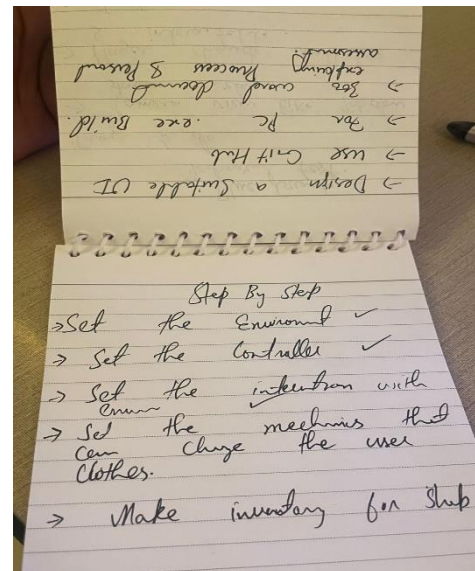 → Design a Suitable UI
→ use GitHub
→ For PC .exe Build.
→ For word document
explaing Process & Personal
assesment.
Step By Step
→ Set the Enviroment ✓
→ Set the Controller ✓
→ Set the with
enum ✓
→ Set the mechnics that
can change the user
Clothes.
→ Make inventory for Shop